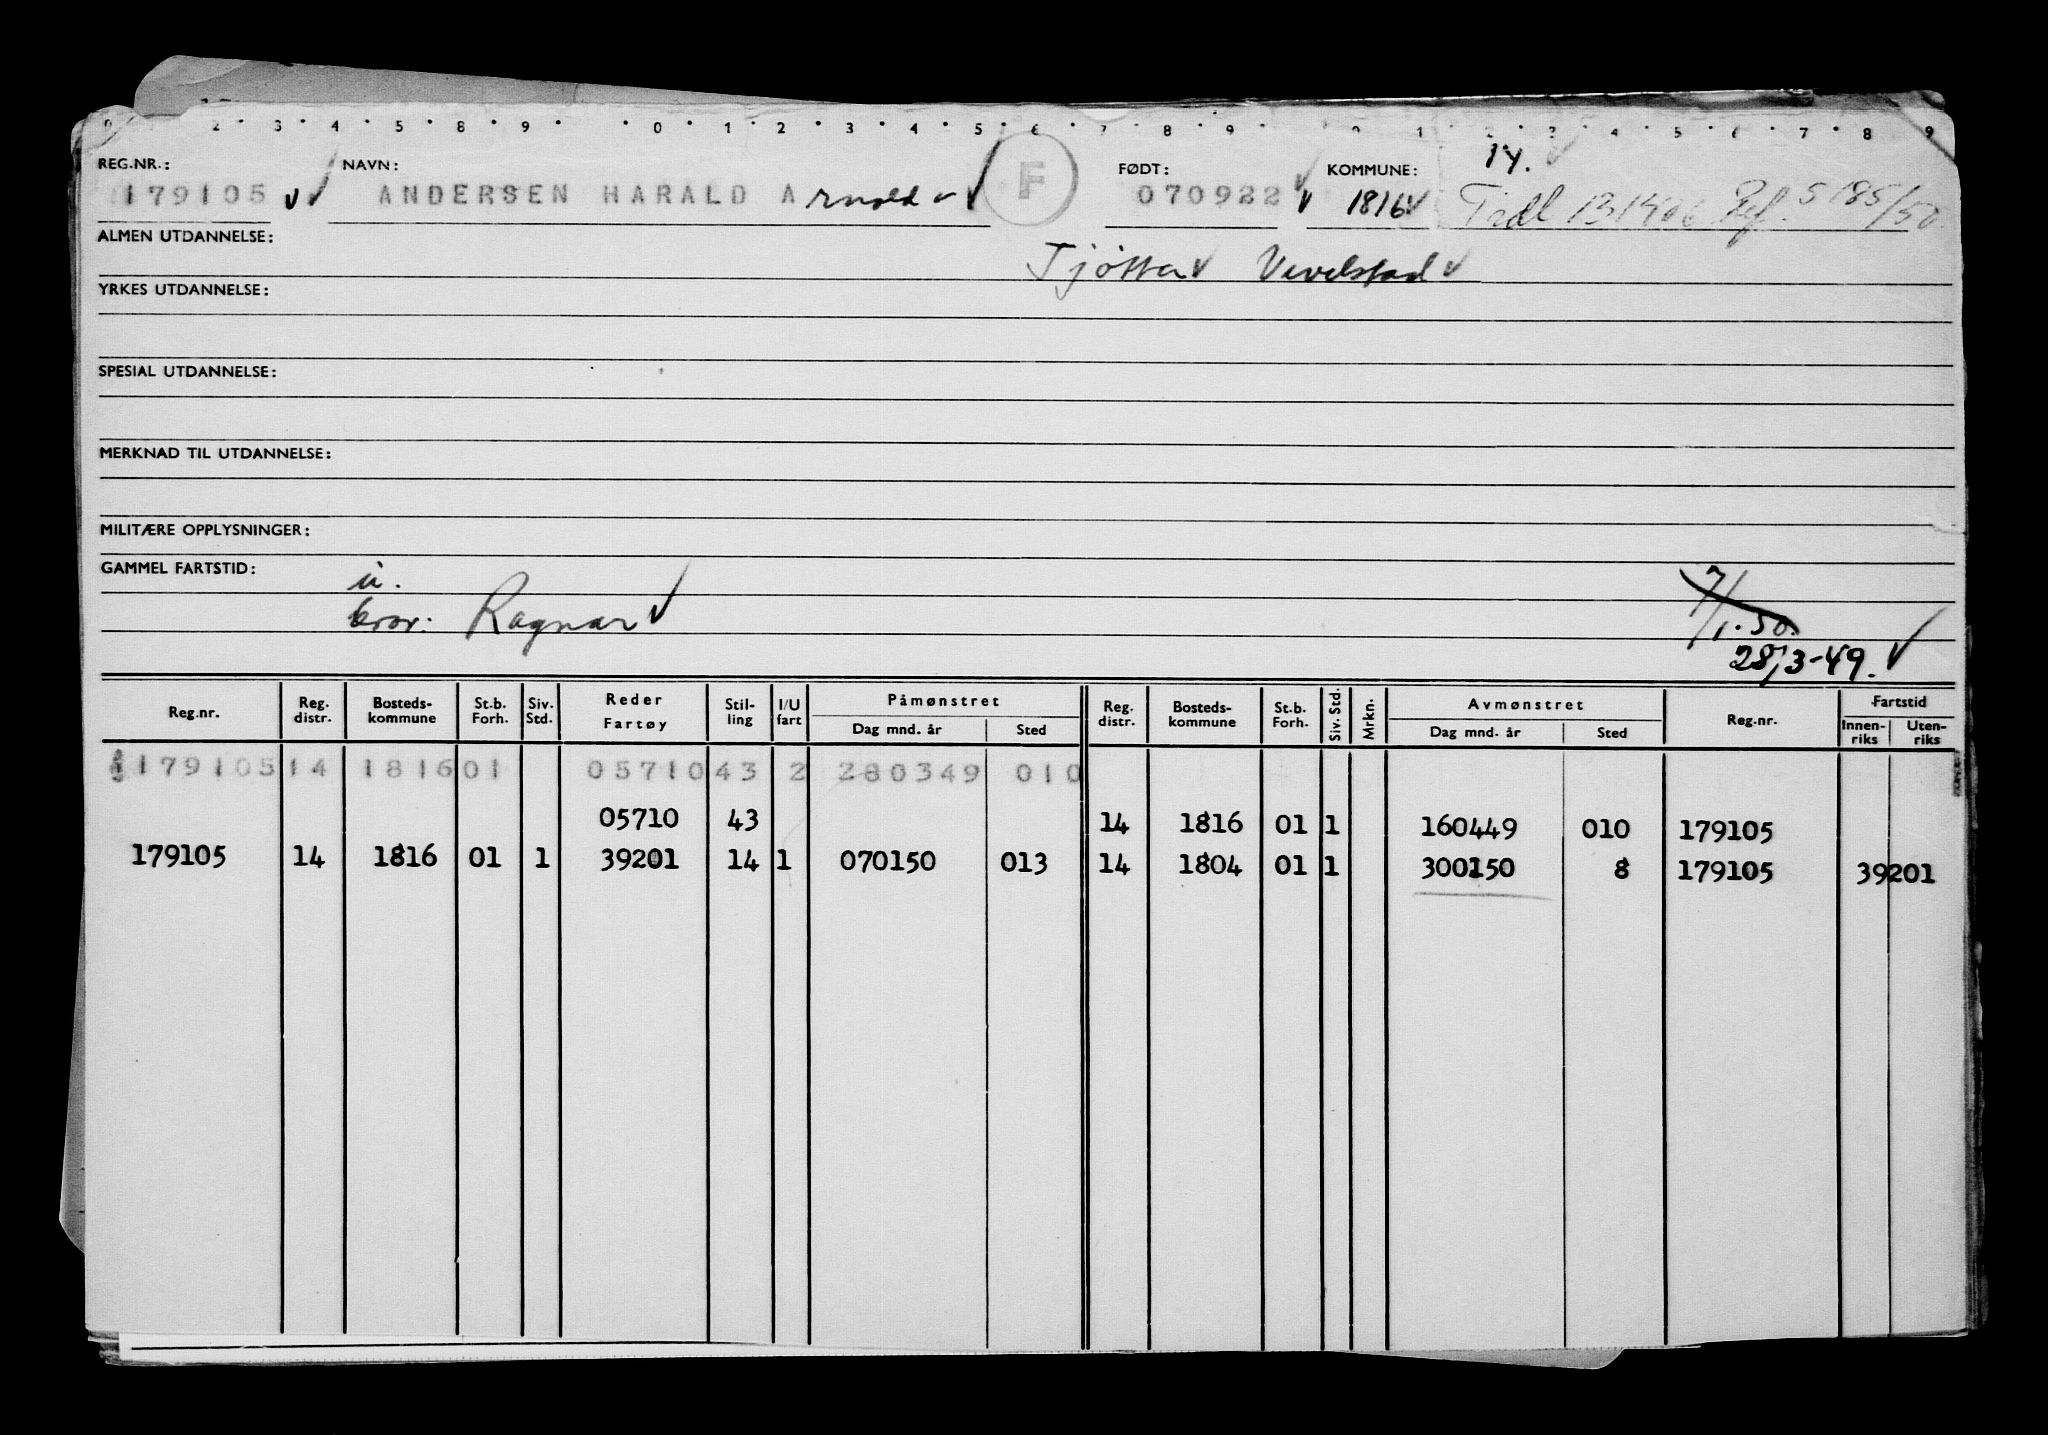 2 3 4 5 8 9 0 1 2 3 4 5 6 7 8 9 1 2 3 4 5 6 7 8 9
14.
REG.NR.: NAVN: FØDT: KOMMUNE:
179105 ANDERSEN HARALD Arnold F 070922 1816 Tidl 131406 Ref. S 185/50
ALMEN UTDANNELSE: Tjøtta Vevelstad
YRKES UTDANNELSE:
SPESIAL UTDANNELSE:
MERKNAD TIL UTDANNELSE:
MILITÆRE OPPLYSNINGER:
GAMMEL FARTSTID: u. 7/1.50.
bror: Ragnar
28/3-49.
Reg.nr. Reg. distr. Bosteds-kommune St.b. Forh. Siv. Std. Reder Fartøy Stil-ling I/U fart Påmønstret Dag mnd. år Sted Reg. distr. Bosteds-kommune St.b. Forh. Siv. Std. Mrkn. Avmønstret Dag mnd. år Sted Reg.nr. Fartstid Innen-riks Uten-riks
179105 14 1816 01 05710 43 2 280349 010
05710 43 14 1816 01 1 160449 010 179105
179105 14 1816 01 1 39201 14 1 070150 013 14 1804 01 1 300150 8 179105 39201